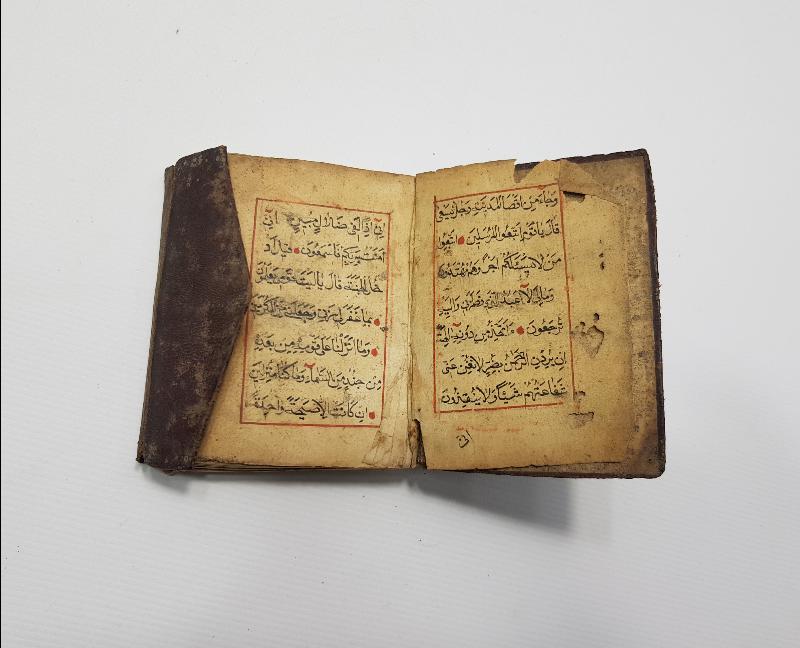 وَجَاءَ مِنْ اَقْصَا الْمَدِينَةِ رَجُلٌ يَسْعٰى
قَالَ يَا قَوْمِ اتَّبِعُوا الْمُرْسَلِينَ اتَّبِعُوا
مَنْ لَا يَسْئَلُكُمْ اَجْرًا وَهُمْ مُهْتَدُونَ
وَمَا لِيَ لَا اَعْبُدُ الَّذِي فَطَرَنِي وَاِلَيْهِ
تُرْجَعُونَ ءَاَتَّخِذُ مِنْ دُونِهِ اٰلِهَةً
اِنْ يُرِدْنِ الرَّحْمٰنُ بِضُرٍّ لَا تُغْنِ عَنِّي
شَفَاعَتُهُمْ شَيْئًا وَلَا يُنْقِذُونَ
اِنِّي
اِنِّي اِذًا لَفِي ضَلَالٍ مُبِينٍ اِنِّي
اٰمَنْتُ بِرَبِّكُمْ فَاسْمَعُونِ قِيلَ ادْ
خُلِ الْجَنَّةَ قَالَ يَا لَيْتَ قَوْمِي يَعْلَمُونَ
بِمَا غَفَرَ لِي رَبِّي وَجَعَلَنِي مِنَ الْمُكْرَمِينَ
وَمَا اَنْزَلْنَا عَلٰى قَوْمِهِ مِنْ بَعْدِهِ
مِنْ جُنْدٍ مِنَ السَّمَاءِ وَمَا كُنَّا مُنْزِلِينَ
اِنْ كَانَتْ اِلَّا صَيْحَةً وَاحِدَةً